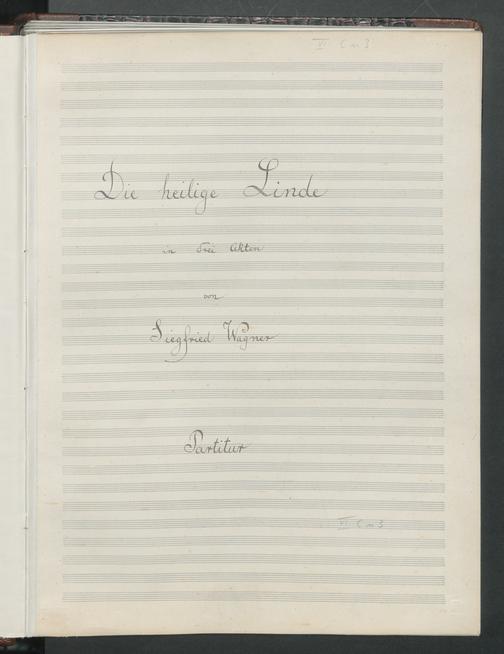 VI C m 3
Die heilige Linde
in drei Akten
von
Siegfried Wagner
Partitur
VI C m 3